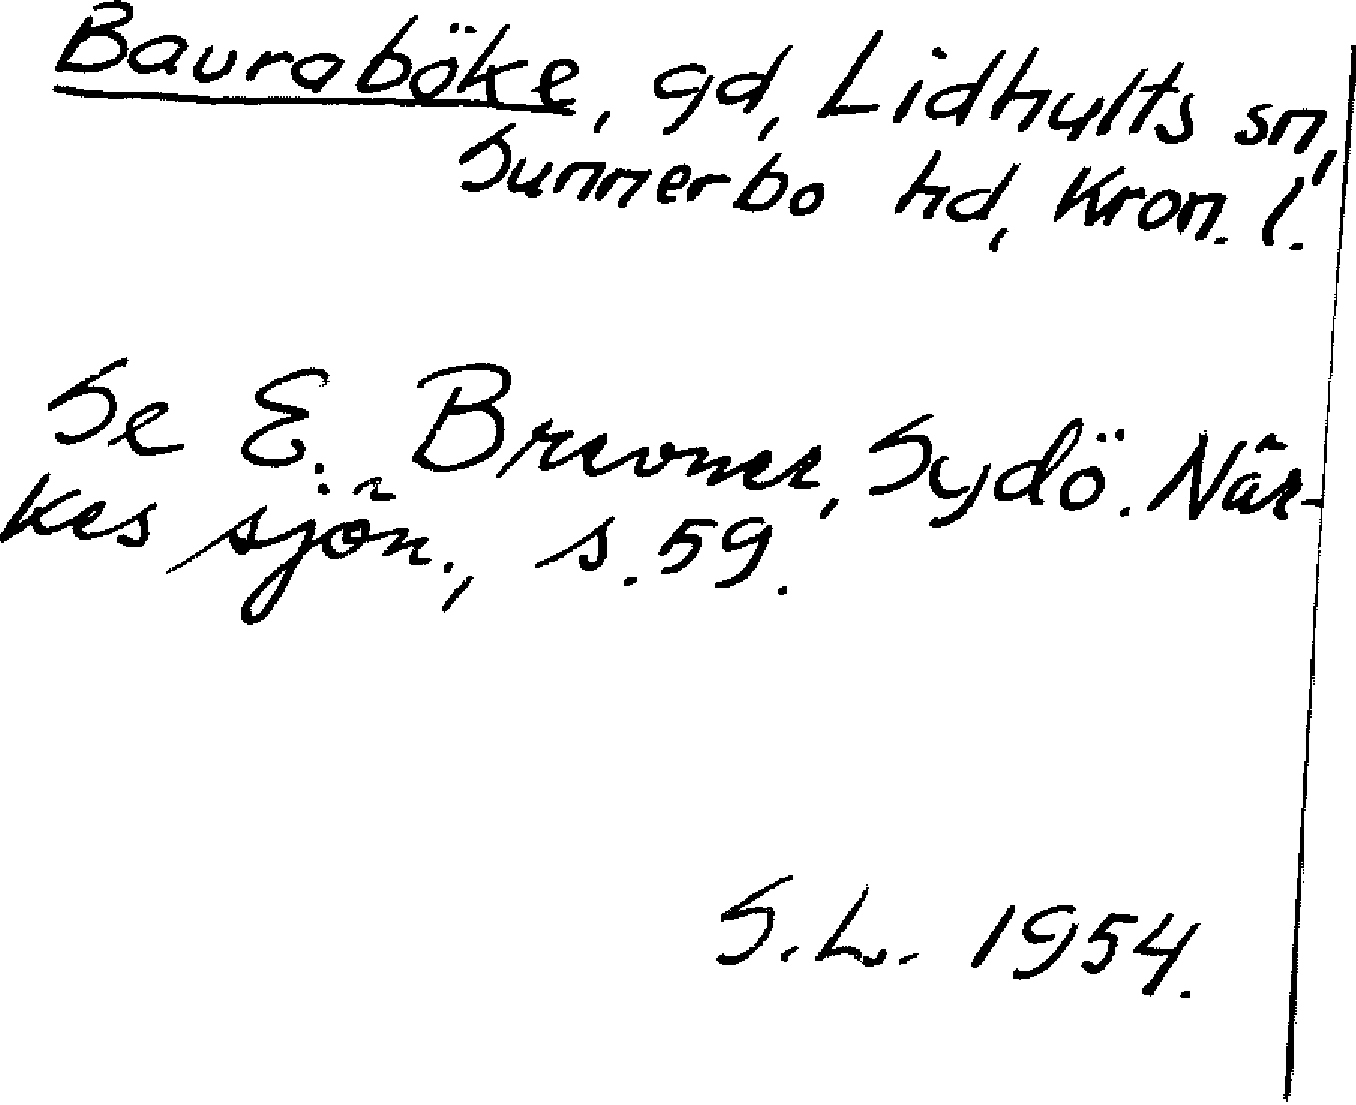 Bauraböke, gd, Lidhults sn,
Sunnerbo hd, Kron. l.
Se E. Brevner, Sydö. När-
kes sjön., s. 59.
S.L. 1954.